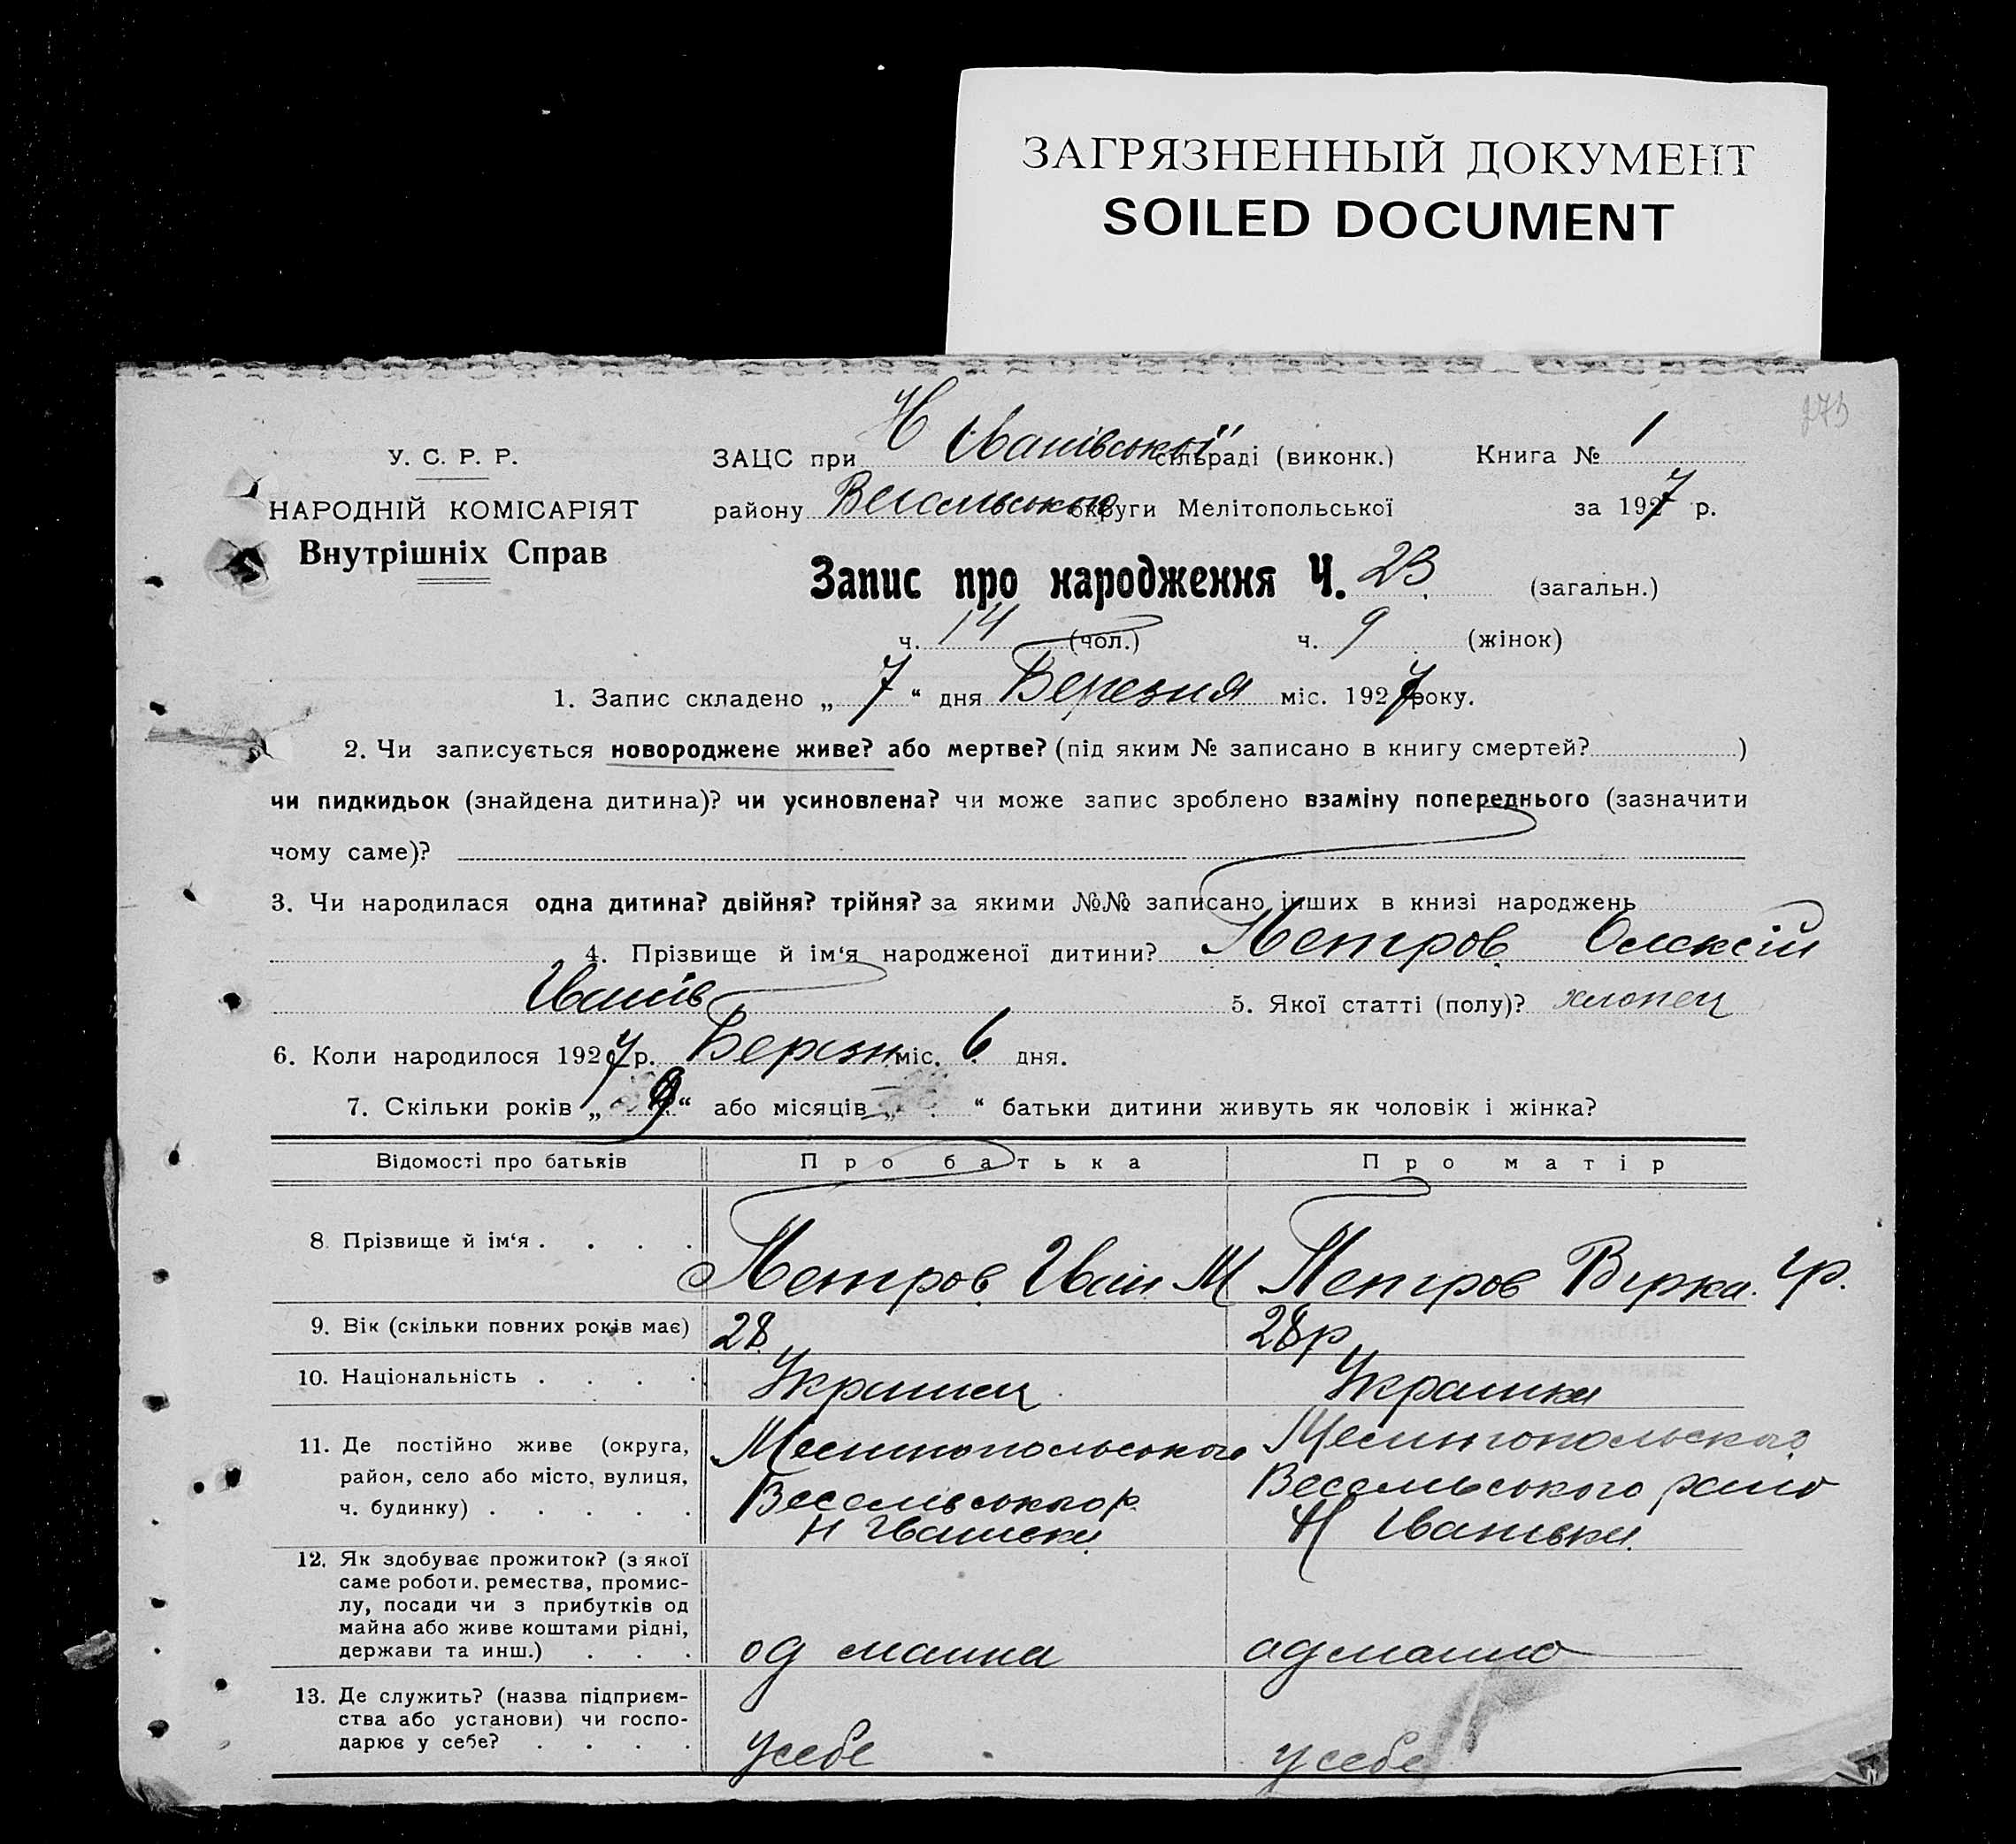 ЗАГРЯЗНЕННЫЙ ДОКУМЕНТ
SOILED DOCUMENT
273
У. С. Р. Р.
НАРОДНІЙ КОМІСАРІЯТ
Внутрішніх Справ
ЗАЦС при Н Іванівської сільраді (виконк.) Книга № 1
району Весельського округи Мелітопольської за 1927 р.
Запис про народження Ч. 23 (загальн.)
ч. 14 (чол.) ч. 9 (жінок)
1. Запис складено „ 7 “ дня Березня міс. 1927 року.
2. Чи записується новороджене живе? або мертве? (під яким № записано в книгу смертей? )
чи пидкидьок (знайдена дитина)? чи усиновлена? чи може запис зроблено взаміну попереднього (зазначити
чому саме)?
3. Чи народилася одна дитина? двійня? трійня? за якими №№ записано інших в книзі народжень
4. Прізвище й ім‘я народженої дитини? Петров Олексій
Іванів 5. Якої статті (полу)? хлопец
6. Коли народилося 1927 р. Березн міс. 6 дня.
7. Скільки років „ 9 “ або місяців „ “ батьки дитини живуть як чоловік і жінка?
Відомості про батьків Про батька Про матір
8. Прізвище й ім‘я . . . . Петров Іван М Петров Вірка Гр.
9. Вік (скільки повних років має) 28 28 р
10. Національність . . . . Украинец Украинка
11. Де постійно живе (округа, Мелитопольського Мелитопольского
район, село або місто, вулиця, Веселівського р Весельського
ч. будинку) . . . . . Н Іванівки Н Іванівки
12. Як здобуває прожиток? (з якої
саме роботи, ремества, промис-
лу, посади чи з прибутків од
майна або живе коштами рідні,
держави та инш.) . . . од маина од маино
13. Де служить? (назва підприєм-
ства або установи) чи госпо-
дарює у себе? . . . . у себе у себе